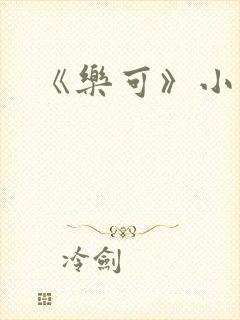 《樂可》小
冷劍